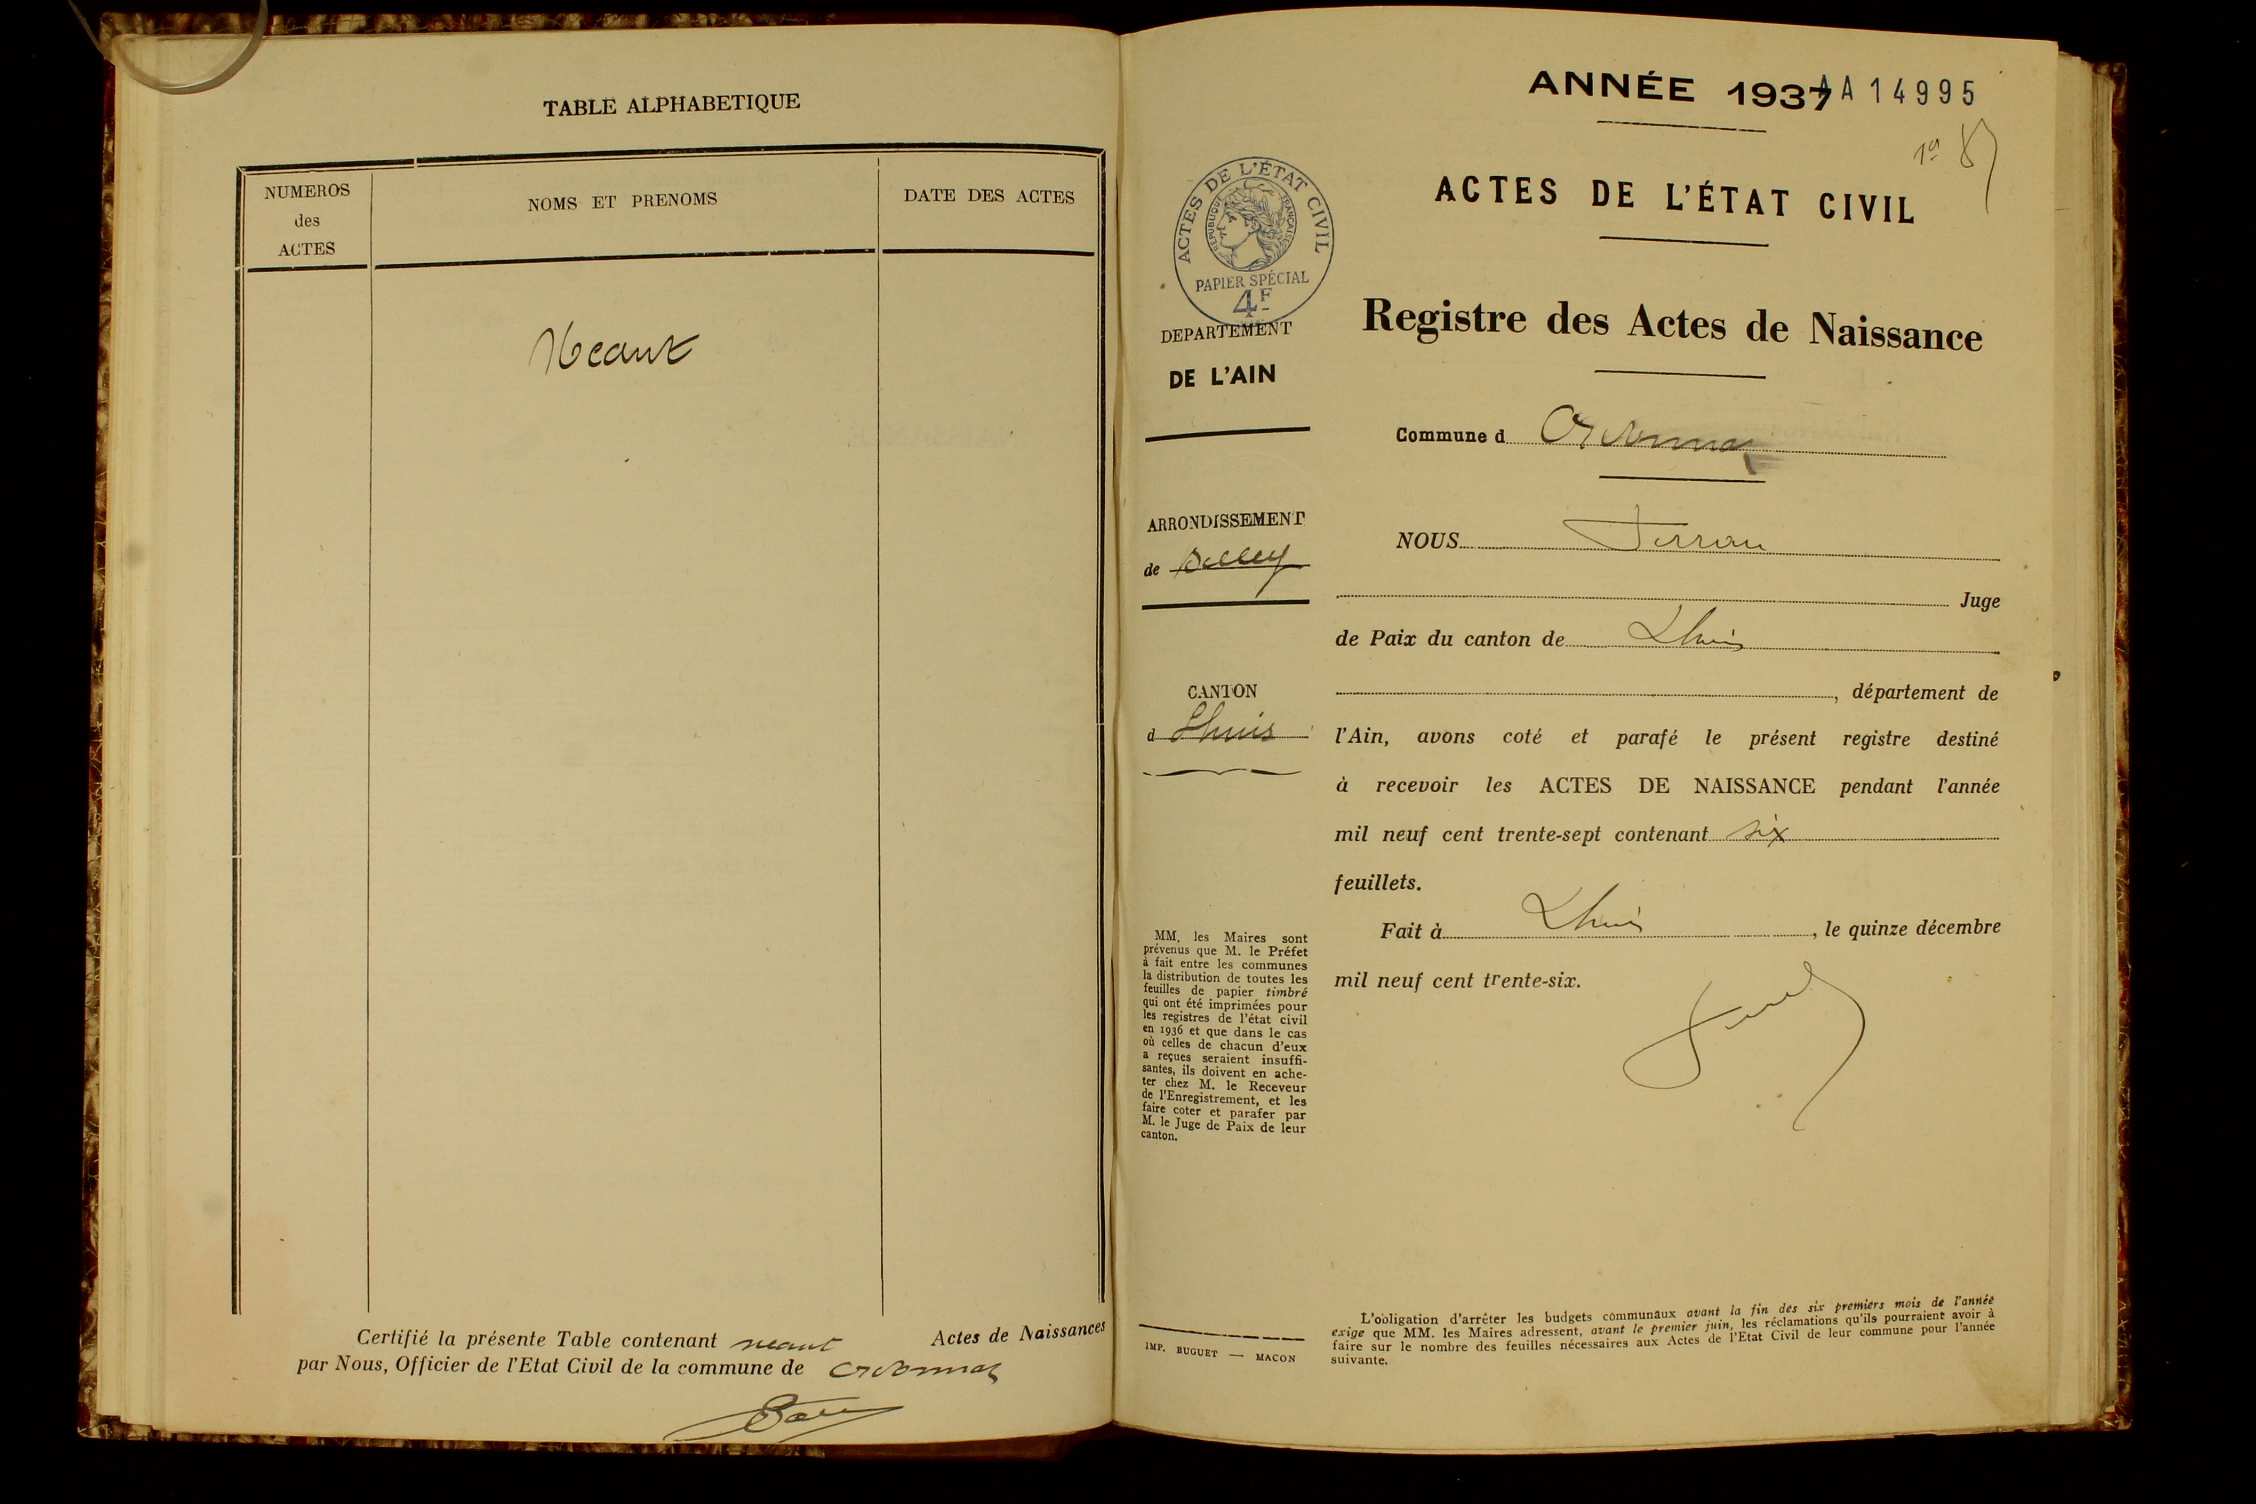 TABLE ALPHABETIQUE
NUMEROS
des
ACTES
NOMS ET PRENOMS
DATE DES ACTES
Neant
Certifié la présente Table contenant neant Actes de Naissances
par Nous, Officier de l'Etat Civil de la commune de Ordonnaz
ANNÉE 1937
AA14995
ACTES DE L'ÉTAT CIVIL
RÉPUBLIQUE FRANÇAISE
PAPIER SPÉCIAL
4F
DEPARTEMENT
DE L'AIN
ARRONDISSEMENT
de Belley
CANTON
d Lhuis
MM, les Maires sont
prévenus que M. le Préfet
à fait entre les communes
la distribution de toutes les
feuilles de papier timbré
qui ont été imprimées pour
les registres de l'état civil
en 1936 et que dans le cas
où celles de chacun d'eux
a reçues seraient insuffi-
santes, ils doivent en ache-
ter chez M. le Receveur
de l'Enregistrement, et les
faire coter et parafer par
M. le Juge de Paix de leur
canton.
IMP. BUGUET — MACON
ACTES DE L'ÉTAT CIVIL
Registre des Actes de Naissance
Commune d Ordonnaz
NOUS
Juge
de Paix du canton de Lhuis
, département de
l'Ain, avons coté et parafé le présent registre destiné
à recevoir les ACTES DE NAISSANCE pendant l'année
mil neuf cent trente-sept contenant six
feuillets.
Fait à Lhuis, le quinze décembre
mil neuf cent trente-six.
L'obligation d'arrêter les budgets communaux avant la fin des six premiers mois de l'année
exige que MM. les Maires adressent, avant le premier juin, les réclamations qu'ils pourraient avoir à
faire sur le nombre des feuilles nécessaires aux Actes de l'Etat Civil de leur commune pour l'année
suivante.